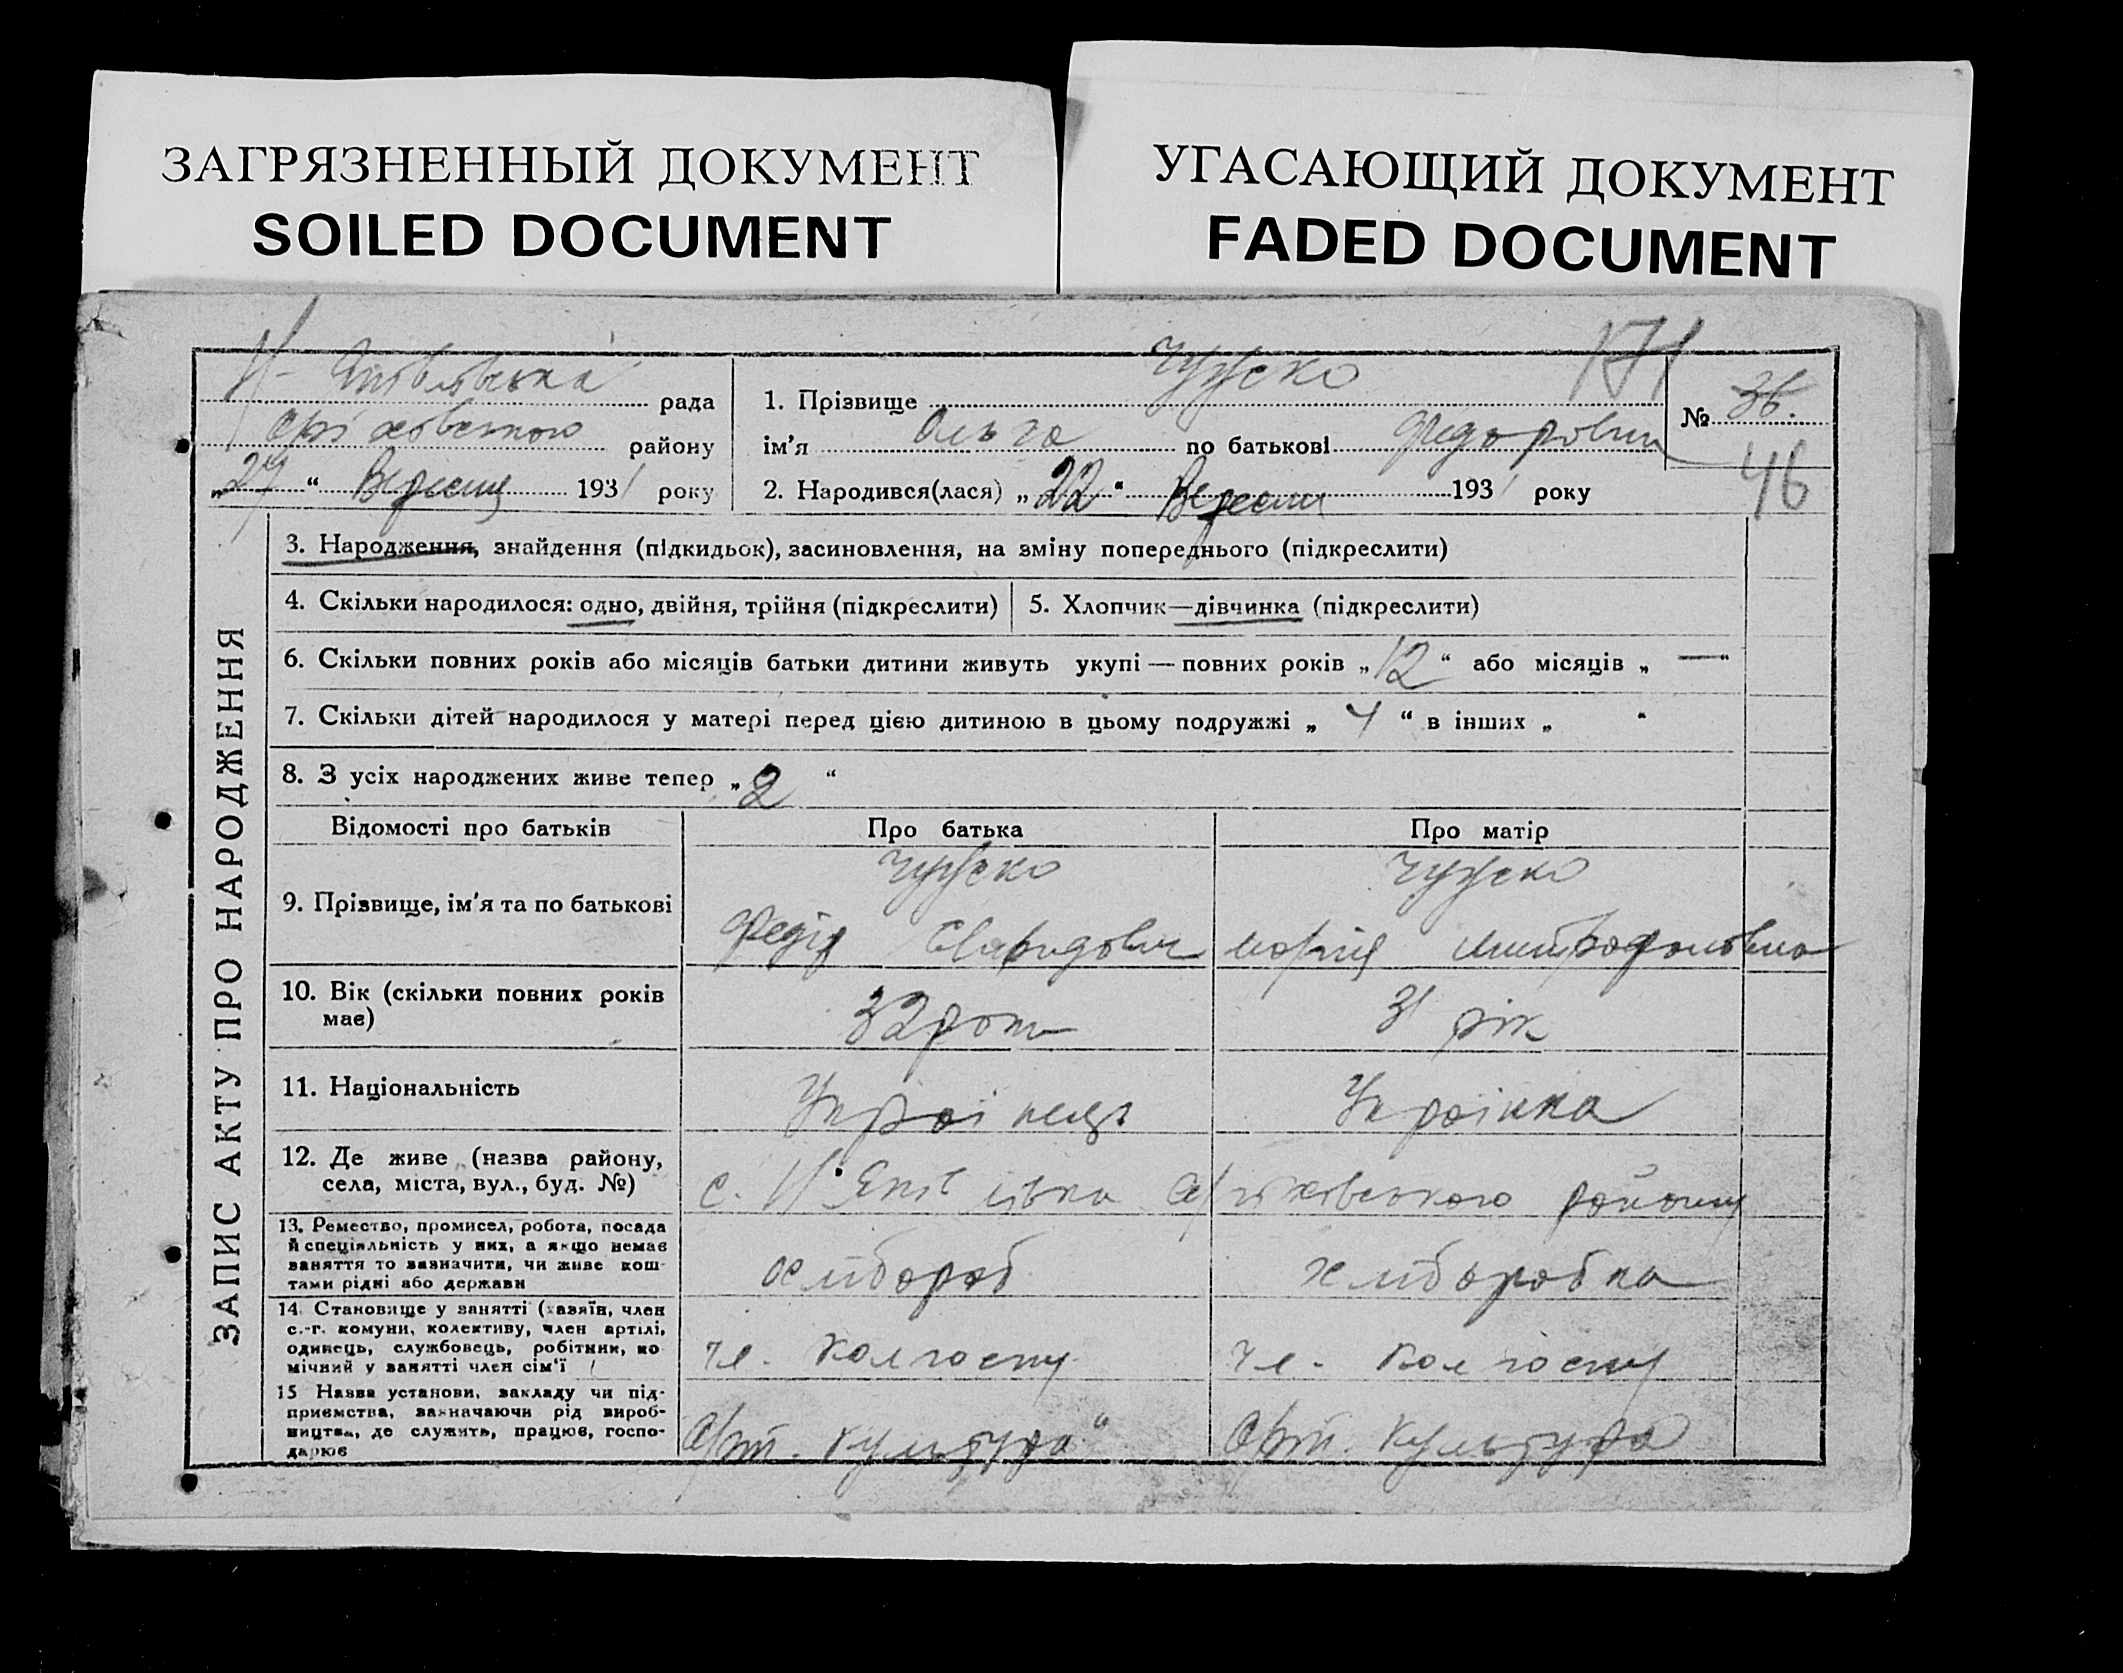 ЗАГРЯЗНЕННЫЙ ДОКУМЕНТ
SOILED DOCUMENT
УГАСАЮЩИЙ ДОКУМЕНТ
FADED DOCUMENT
171
рада
району
„27“ Вересня 1931 року
1. Прізвище
ім'я Ольга по батькові Федоровна
2. Народився(лася) „22“ Вересня 1931 року
№ 36.
46
ЗАПИС АКТУ ПРО НАРОДЖЕННЯ
3. Народження, знайдення (підкидьок), засиновлення, на зміну попереднього (підкреслити)
4. Скільки народилося: одно, двійня, трійня (підкреслити)
5. Хлопчик—дівчинка (підкреслити)
6. Скільки повних років або місяців батьки дитини живуть укупі — повних років „12“ або місяців „—“
7. Скільки дітей народилося у матері перед цією дитиною в цьому подружжі „4“ в інших „ “
8. З усіх народжених живе тепер „2“
Відомості про батьків
Про батька
Про матір
9. Прізвище, ім'я та по батькові
Федір
Марія Митрофановна
10. Вік (скільки повних років
має)
32 роки
31 рік
11. Національність
Українець
Українка
12. Де живе (назва району,
села, міста, вул., буд. №)
с. району
13. Ремество, промисел, робота, посада
й спеціяльність у них, а якщо немає
заняття то зазначити, чи живе кош-
тами рідні або держави
хлібороб
хліборобка
14. Становище у занятті (хазяїн, член
с.-г. комуни, колективу, член артілі,
одинець, службовець, робітник, по
мічний у занятті член сім'ї
чл. колгоспу
чл. колгоспу
15 Назва установи, закладу чи під-
приємства, зазначаючи рід вироб-
ництва, де служить, працює, госпо-
дарює
Арт. Культура“
Арт. Культура